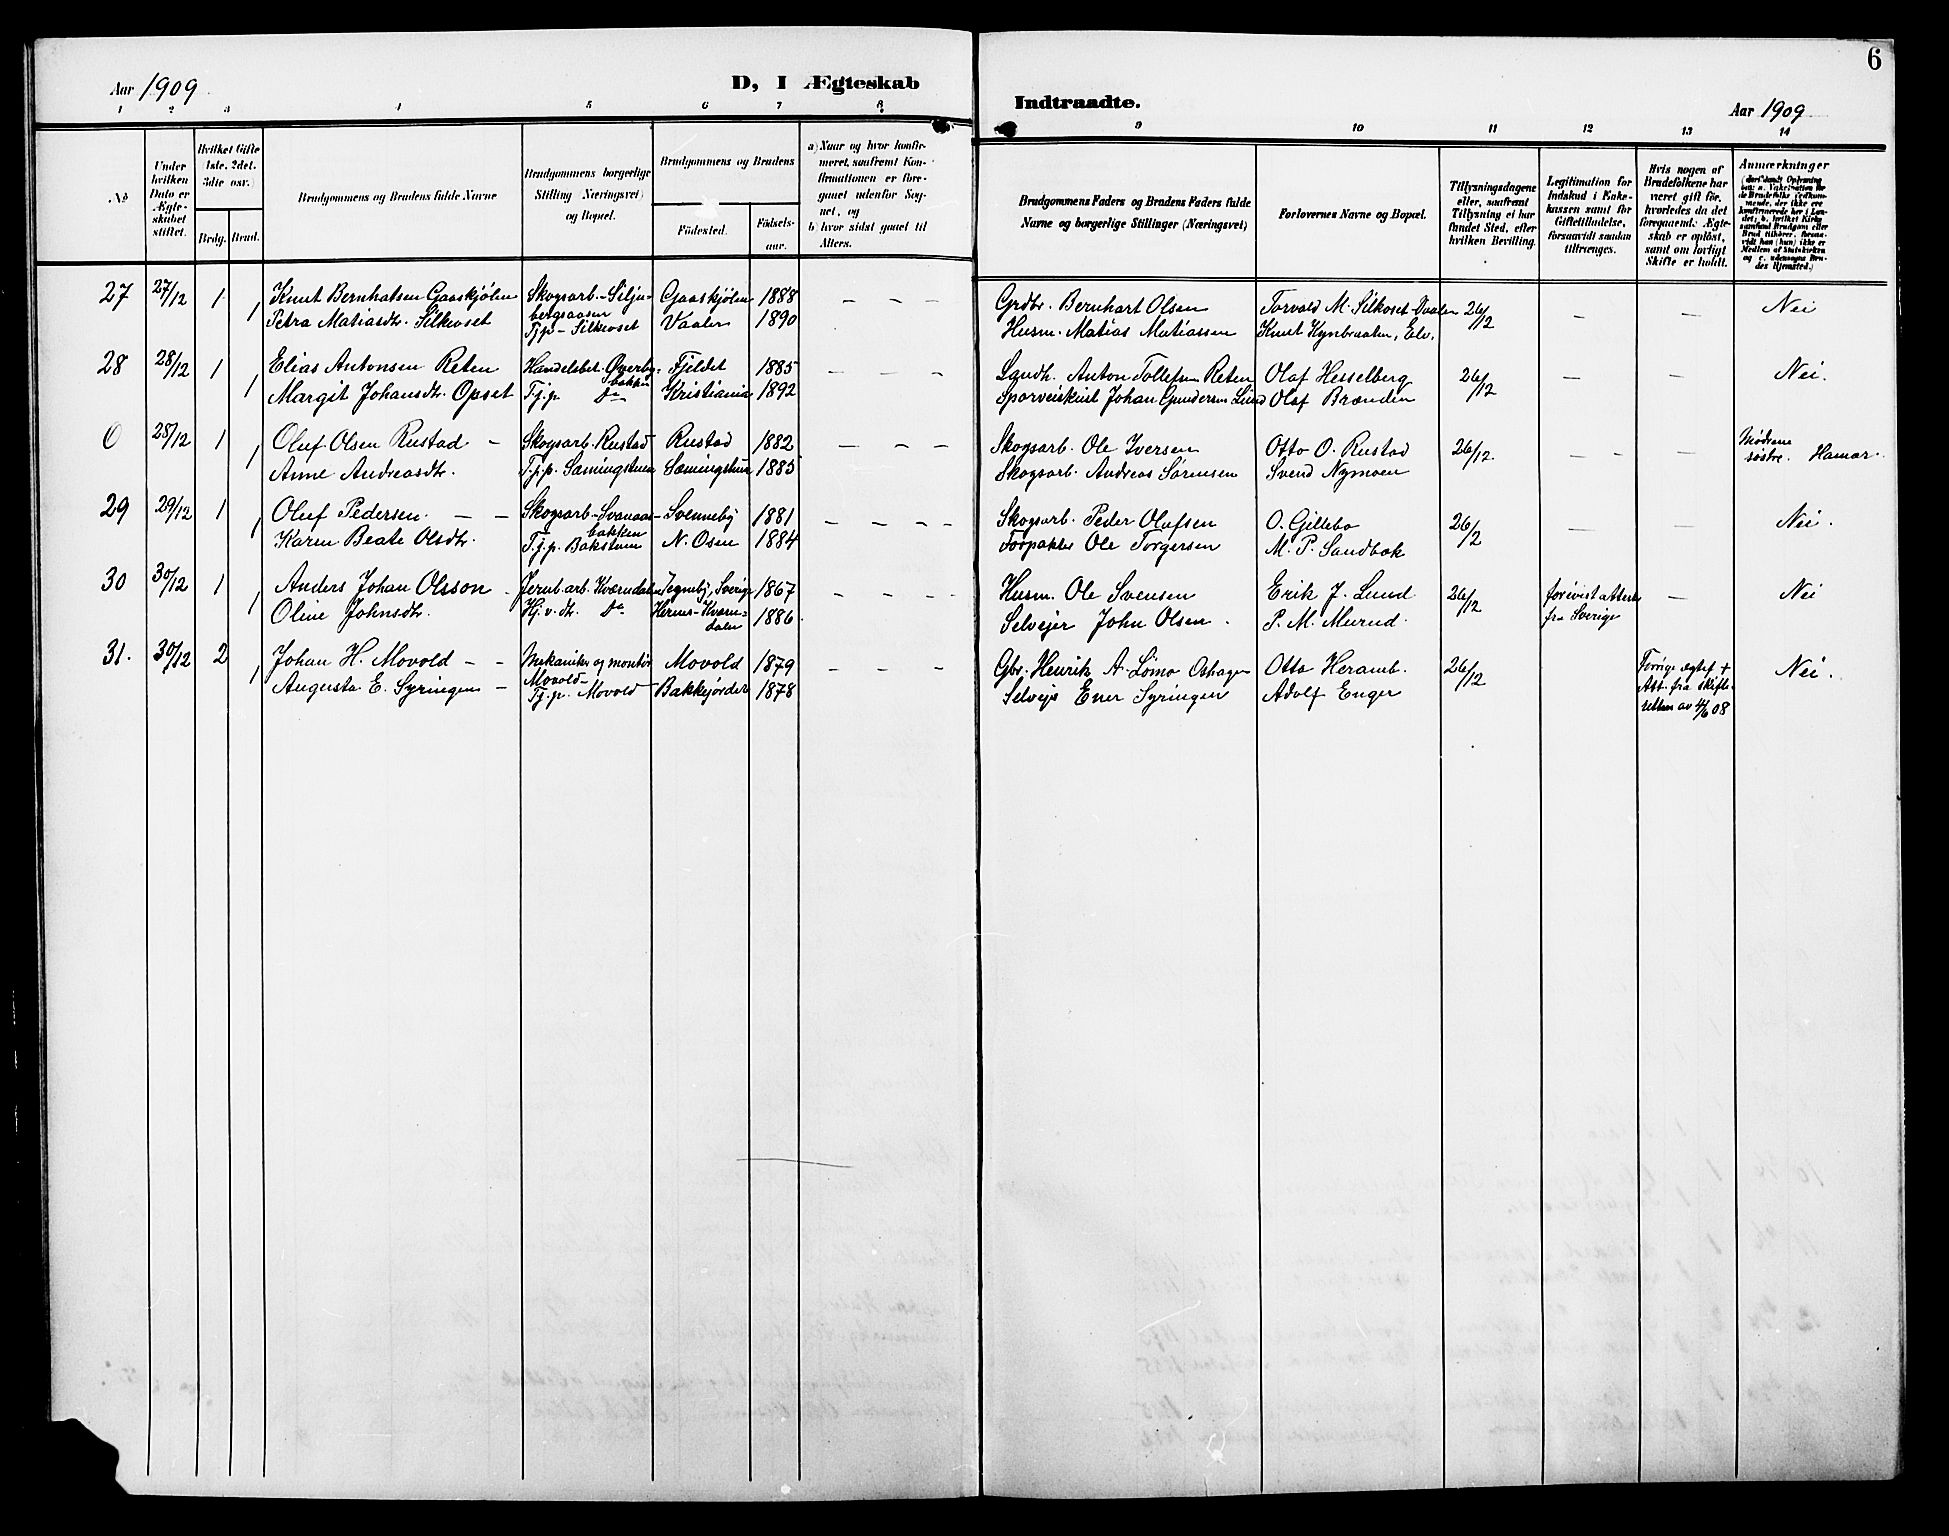 Aar 1909
D, I Ægteskab
Indtraadte.
Aar 1909
6
1 2 3 4 5 6 7 8 9 10 11 12 13 14
No
Under hvilken Dato er Ægteskabet stiftet.
Hvilket Gifte 1ste, 2det, 3die osv.)
Brdg. Brud.
Brudgommens og Brudens fulde Navne
Brudgommens borgerlige Stilling (Næringsvei) og Bopæl.
Brudgommens og Brudens
Födested.
Födselsaar.
a) Naar og hvor konfirmeret, saafremt Konfirmationen er foregaaet udenfor Sognet, og
b) hvor sidst gaaet til Alters.
Brudgommens Faders og Brudens Faders fulde Navne og borgerlige Stillinger (Næringsvei)
Forlovernes Navne og Bopæl.
Tillysningsdagene eller, saafremt Tillysning ei har fundet Sted, efter hvilken Bevilling.
Legitimation for Indskud i Enkekassen samt for Giftetilladelse, forsaavidt saadan tiltrænges.
Hvis nogen af Brudefolkene har været gift för, hvorledes da det foregaaende Ægteskab er oplöst, samt om lovligt Skifte er holdt.
Anmærkninger
27 27/12 1 Knut Bernhatsen Gaaskjølen Skogsarb. Silju- Gaaskjølen 1888 – – – Grdbr. Bernhart Olsen Torvald M. Silkoset Vaaler 26/12 – – Nei
bergsaasen
1 Petra Matiasdtr. Silkoset Tjp – Silkoset Vaaler 1890 Husm. Matias Matiassen Knut Kynbraaten, Elv.
28 28/12 1 Elias Antonsen Reten Handelsbet. Øverby- Fjeldet 1885 – – – Landh. Anton Tollefsen Reten Olaf Hesselberg 26/12 – – Nei.
bakken
1 Margit Johansdtr. Opset T.j.p. Do Kristiania 1892 Sporveiskust Johan Gundersen Lund Olaf Brænden
0 28/12 1 Oluf Olsen Rustad – Skogsarb. Rustad Rustad 1882 – – – Skogsarb. Ole Iversen Otto O. Rustad 26/12. – – Mødrene søstre. Hamar.
1 Anne Andreasdtr. T.j.p. Sæmingstuen Sæmingstuen 1885 Skogsarb. Andreas Sørensen Svend Nymoen
29 29/12 1 Oluf Pedersen. – – Skogsarb. Svanaas- Svenneby 1881 – – – – Skogsarb. Peder Olafsen O. Gillebo 26/12 – – Nei.
bakken
1 Karen Beate Olsdtr. T.j.p. Bakstuen N. Osen 1884 Forpakter Ole Torgersen M. P. Sandbak
30 30/12 1 Anders Johan Olsson – Jernb.arb. Kværndalen Sverige 1867 Husm. Ole Svensen Erik J. Lund 26/12 forevist attest fra Sverige – Nei
1 Oline Johnsdtr. Hj.v. dtr. Do Hernes-Kværn- 1886 Selvejer John Olsen. P. M. Murud.
dalen
31. 30/12 2 Johan H. Movold – – Mekaniker og montør Movold 1879 – – – Gbr. Henrik A. Lømo Oshagen Otto Heramb. 26/12 Forrige egtef + Nei.
Movold
1 Augusta E. Syringen – Tj.p. Movold Bakkejordet 1878 Selvejr Ener Syringen Adolf Enger Att. fra skifte-
retten av 4/6 08